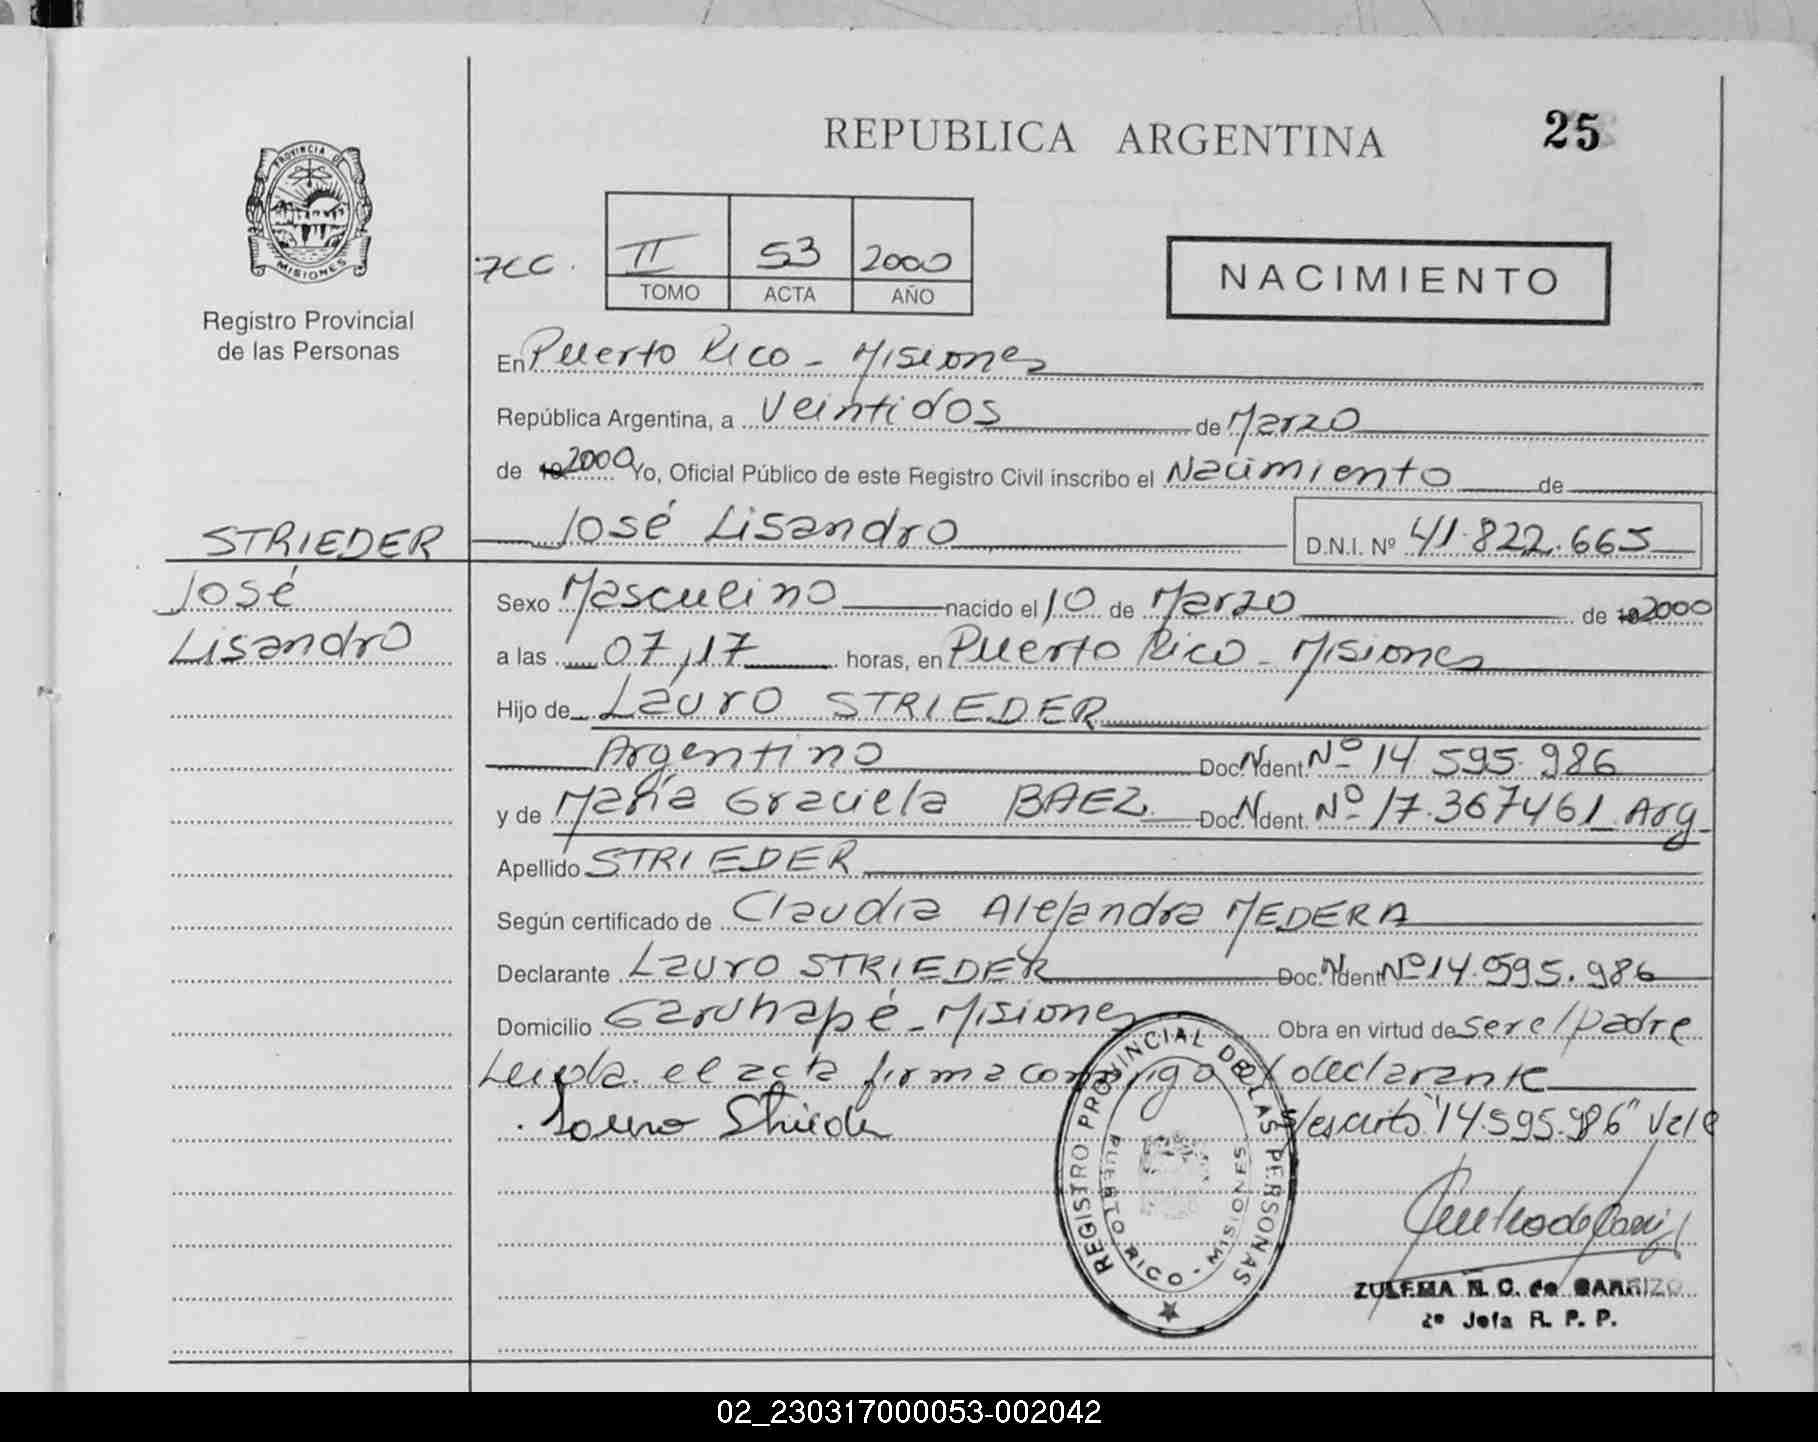 REPUBLICA ARGENTINA
25
PROVINCIA DE
MISIONES
Registro Provincial
de las Personas
II 53 2000
TOMO ACTA AÑO
NACIMIENTO
En Puerto Rico - Misiones
República Argentina, a Veintidos de Marzo
de 2000 Yo, Oficial Público de este Registro Civil inscribo el Nacimiento de
STRIEDER
José Lisandro D.N.I. Nº 41.822.665
José
Lisandro
Sexo Masculino nacido el 10 de Marzo de 2000
a las 07,17 horas, en Puerto Rico - Misiones
Hijo de Lauro STRIEDER
Argentino Doc. Ident. Nº 14 595.986
y de María Graciela BAEZ Doc. Ident. Nº 17.367461 Arg.
Apellido STRIEDER
Según certificado de Claudia Alejandra MEDERA
Declarante Lauro STRIEDER Doc. Ident Nº 14.595.986
Domicilio Garuhapé - Misiones Obra en virtud de ser el padre
Leida el acta firma conmigo el declarante
S/escrito "14.595.986" Vale
Lauro Strieder
REGISTRO PROVINCIAL DE LAS PERSONAS
PUERTO RICO - MISIONES
ZULEMA N. C. de CARRIZO
2º Jefa R. P. P.
02_230317000053-002042